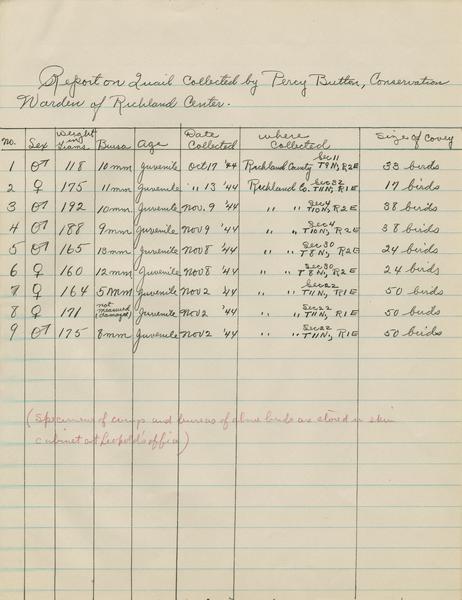 Report on Quail Collected by Percy Button, Conservation
Warden of Richland Center.
No. Sex Weight in Grams Bursa Age Date Collected Where Collected Size of Covey
1 ♂ 118 10mm Juvenile Oct 17 '44 Richland County Sec 11 T9N, R2E 33 birds
2 ♀ 175 11mm Juvenile " 13 '44 Richland Co. Sec 32 T11N, R1E 17 birds
3 ♂ 192 10mm Juvenile Nov. 9 '44 " " Sec 4 T10N, R2E 38 birds
4 ♂ 188 9mm Juvenile Nov 9 '44 " " Sec 4 T10N, R2E 38 birds
5 ♂ 165 13mm Juvenile Nov 8 '44 " " Sec 30 T8N, R2E 24 birds
6 ♀ 160 12mm Juvenile Nov 8 '44 " " Sec 30 T8N, R2E 24 birds
7 ♀ 164 5mm Juvenile Nov 2 '44 " " Sec 22 T11N, R1E 50 birds
8 ♀ 171 not measured (damaged) Juvenile Nov 2 '44 " " Sec 22 T11N, R1E 50 birds
9 ♂ 175 8mm Juvenile Nov 2 '44 " " Sec 22 T11N, R1E 50 birds
(Specimens of crops and bursas of above birds are stored in skin
cabinet at Leopold's office)